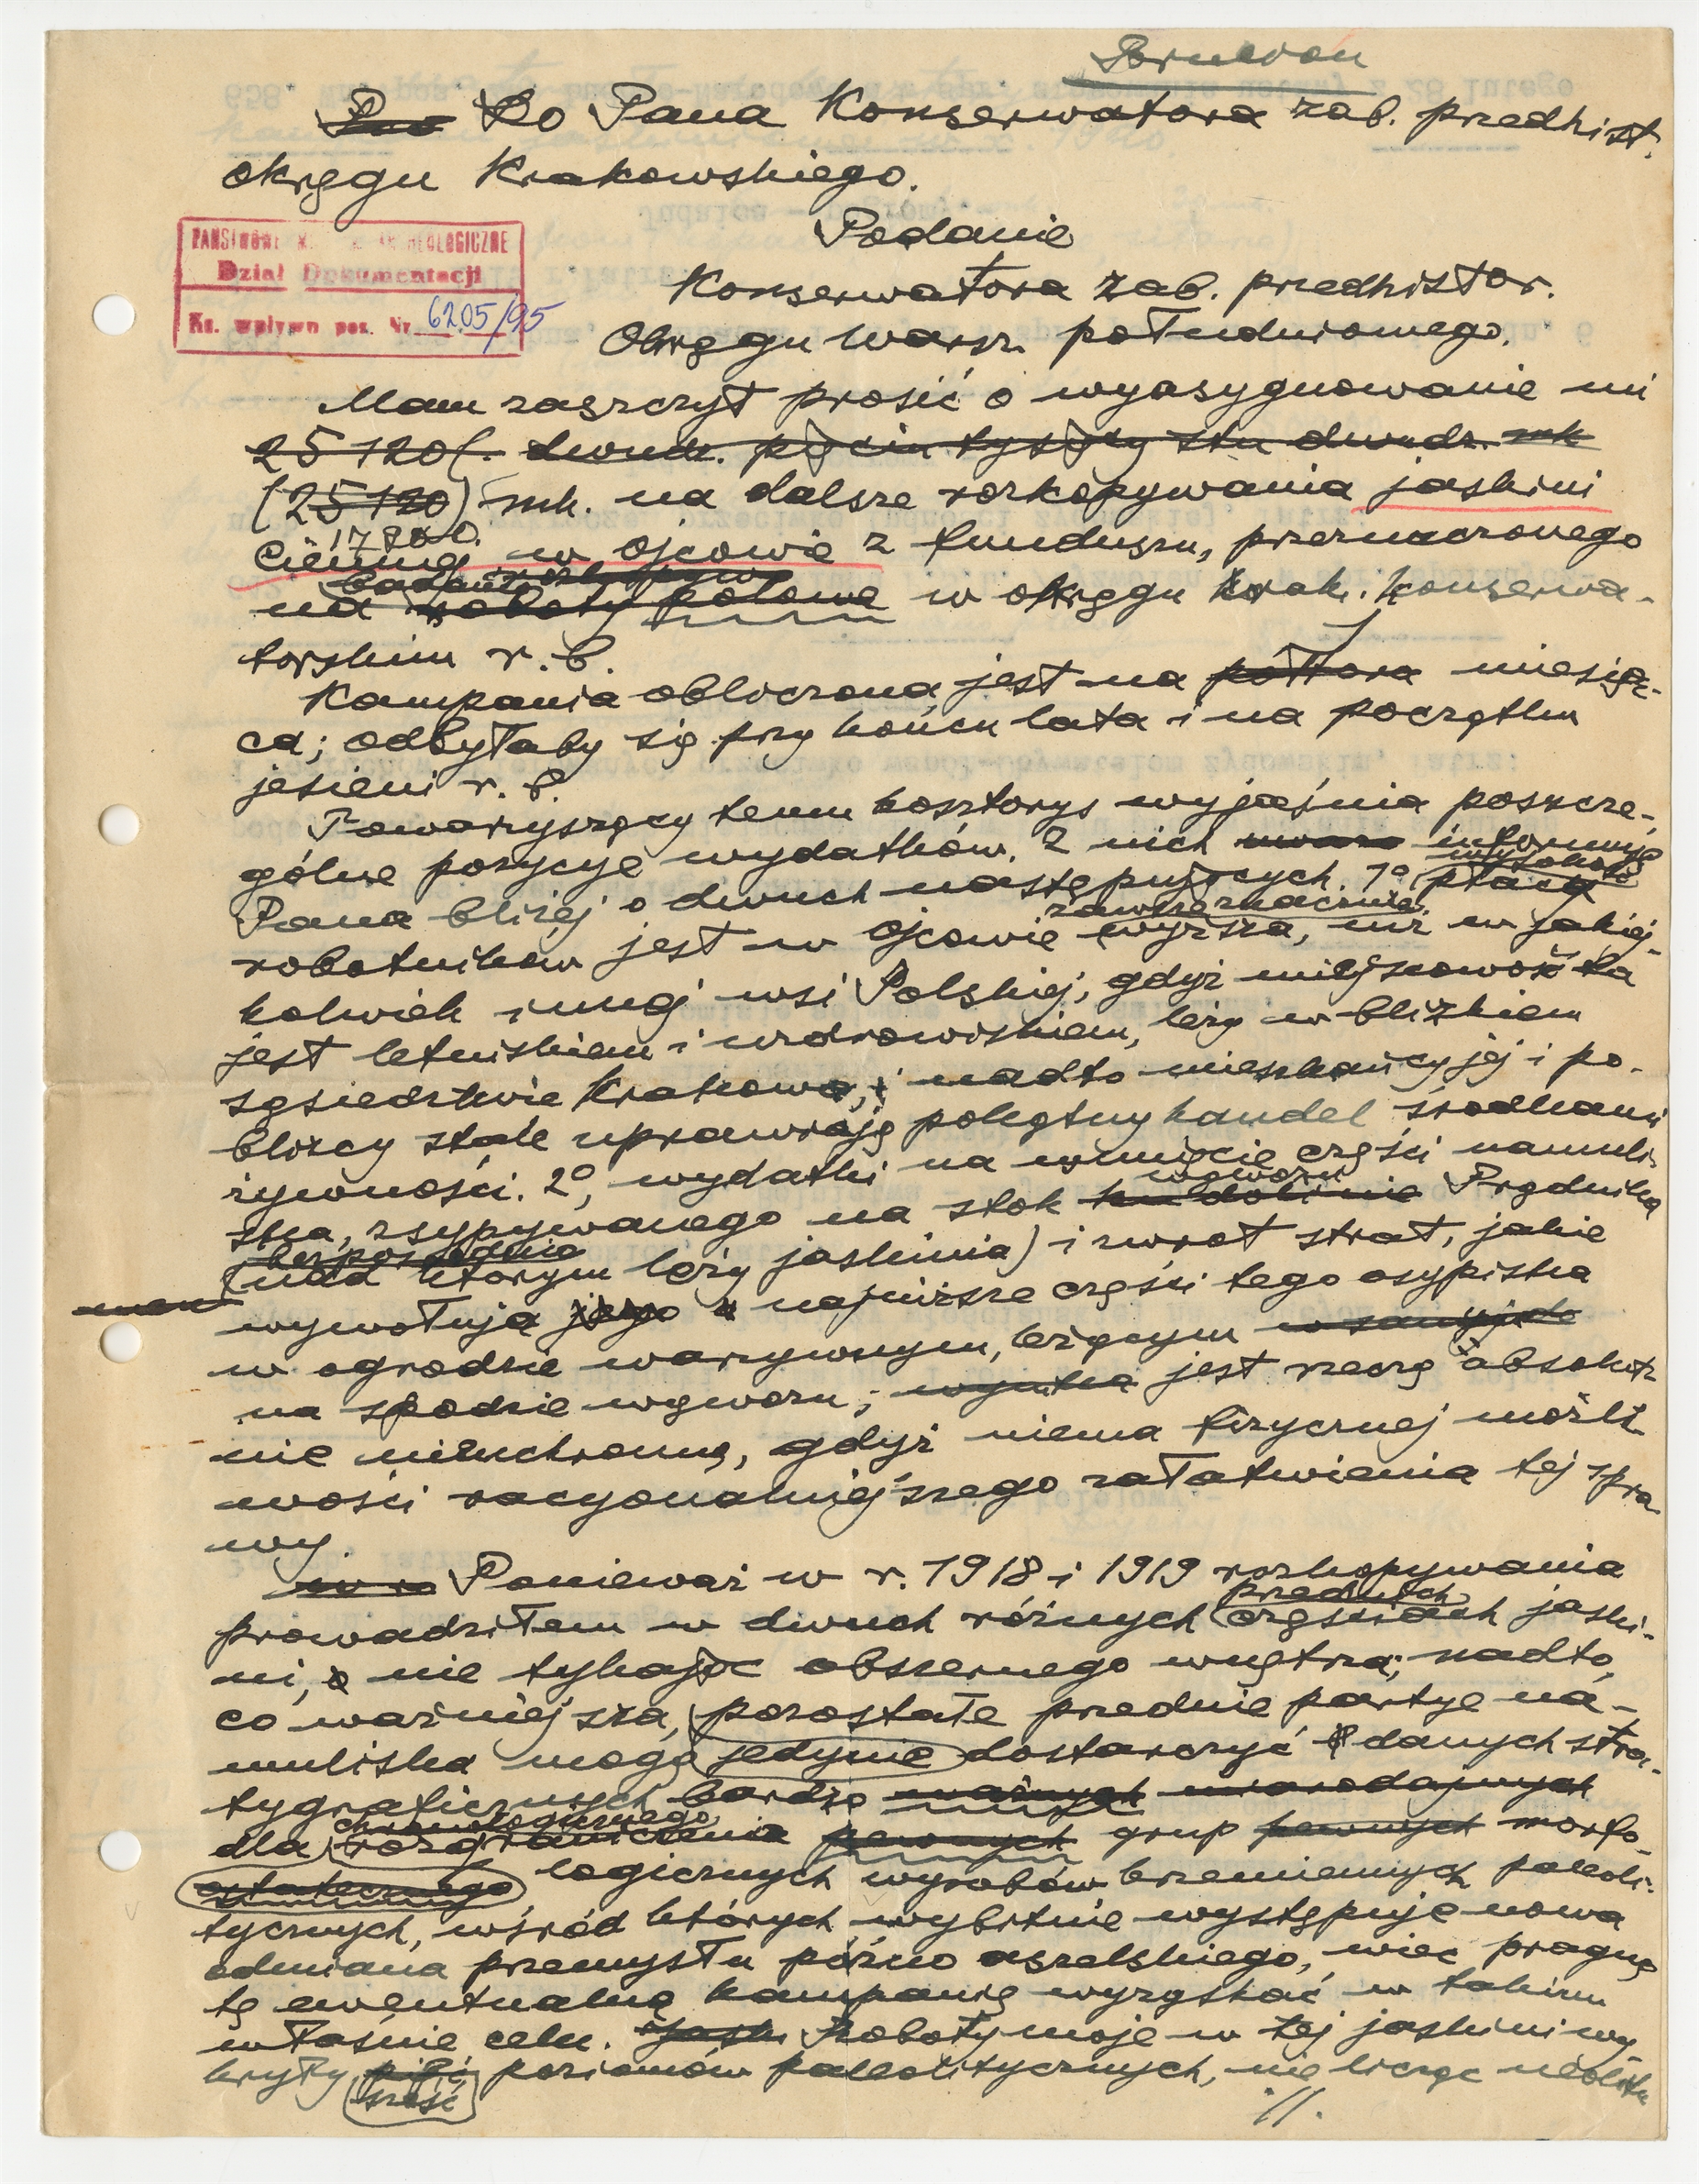 Brulion
Do Pana Konserwatora zab. predhist.
okręgu Krakowskiego.
PAŃSTWOWE MUZEUM ARCHEOLOGICZNE
Dział Dokumentacji
Ks. wpływu poz. Nr 6205/95
Podanie
Konserwatora zab. predhistor.
Okręgu warsz. południowego.
Mam zaszczyt prosić o wyasygnowanie mi
25 120 (. dwudz. pięciu tysięcy stu dwudz. mk
(25 120) mk. na dalsze rozkopywania jaskini
17 800.
Ciemnej w Ojcowie z funduszu, przeznaczonego
badania
na roboty polowe w okręgu krak. konserwa-
torskim r. b.
Kampania obliczona jest na półtora miesią-
ca; odbyłaby się przy końcu lata i na początku
jesieni r. b.
Towarzyszący temu kosztorys wyjaśnia poszcze-
gólne pozycye wydatków. Z nich informuję
wysokość
Pana bliżej o dwuch następujących. 1º, płaca
zawsze znacznie
robotników jest w Ojcowie wyższa, niż w jakiej-
kolwiek innej wsi Polskiej, gdyż miejscowość ta
jest letniskiem i uzdrowiskiem, leży w blizkiem
sąsiedztwie Krakowa, i nadto mieszkańcy jej i po-
bliscy stale uprawiają potężny handel środkami
żywności. 2º, wydatki na usunięcie części namuli-
wąwozu
ska, zsypywanego na stok ku dolinie Prądnika
bezpośrednio
(nad którym leży jaskinia) i zwrot strat, jakie
wywołują najniższe części tego osypiska
w ogrodzie warzywnym, leżącym
na spodzie wąwozu; jest rzeczą absolut-
nie nieuchronną, gdyż niema fizycznej możli-
wości racyonalniejszego załatwienia tej spra-
wy.
Ponieważ w r. 1918 i 1919 rozkopywania
przednich
prowadziłem w dwuch różnych częściach jaski-
ni, nie tykając obszernego wnętrza; nadto,
co ważniejsza, pozostałe przednie partye na-
muliska mogą jedynie dostarczyć danych stra-
tygraficznych bardzo ważnych miarodajnych
chronologicznego
dla rozgraniczenia pewnych grup pewnych morfo-
ostatecznego logicznych wyrobów krzemiennych paleoli-
tycznych, wśród których wybitnie występuje nowa
odmiana przemysłu późno aszelskiego, więc pragnę
tę ewentualną kampanię wyzyskać w takim
właśnie celu. Roboty moje w tej jaskini wy-
kryły pięć poziomów paleolitycznych, nie licząc neolitu
sześć
·//.